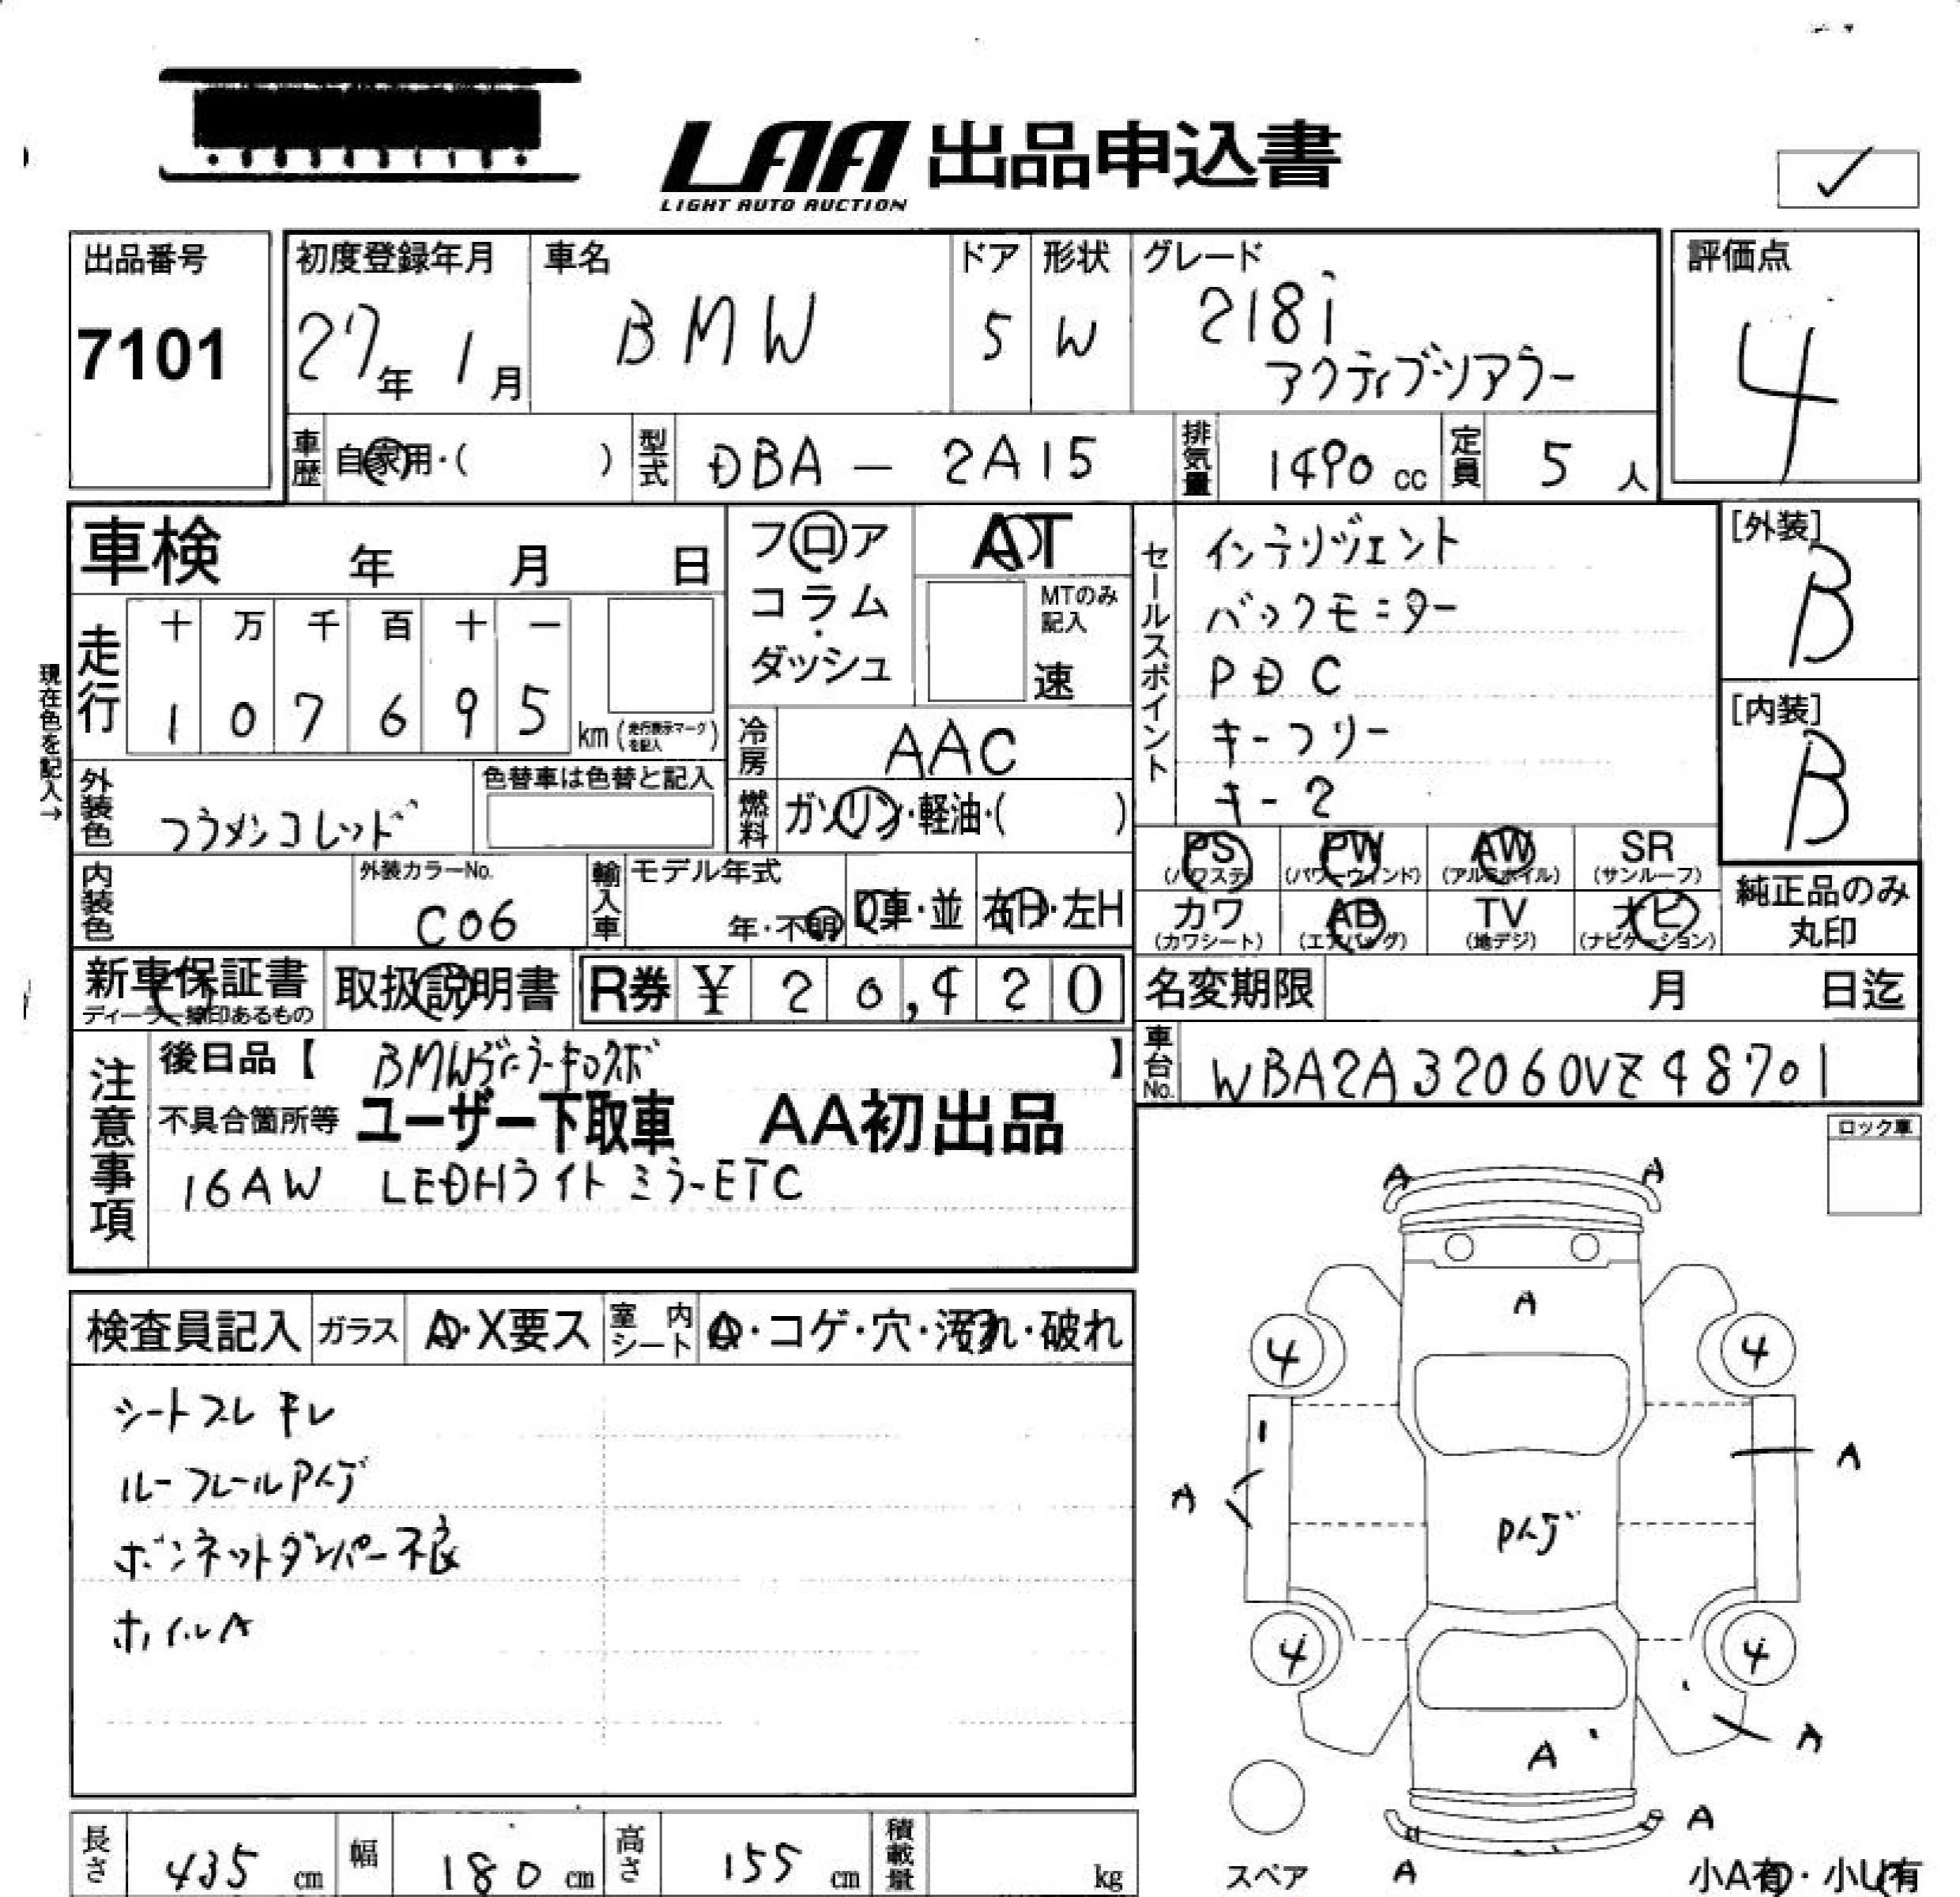 LAA 出品申込書
LIGHT AUTO AUCTION
出品番号
7101
初度登録年月
27年 1月
車名
BMW
ドア
5
形状
W
グレード
218i
アクティブツアラー
評価点
4
車歴
自家用・( )
型式
DBA - 2A15
排気量
1490 cc
定員
5 人
車検 年 月 日
フロア
コラム
・
ダッシュ
AT
MTのみ
記入
速
セールスポイント
インテリジェント
バックモニター
PDC
キーフリー
キー2
[外装]
B
[内装]
B
現在色を記入→
走行
十 万 千 百 十 一
1 0 7 6 9 5
km (走行表示マークを記入)
冷房
AAC
外装色
フラメンコレッド
色替車は色替と記入
燃料
ガソリン・軽油・( )
PS AW SR
(パワステ) PW (パワーウィンド) (アルミホイル) (サンルーフ)
カワ AB TV ナビ
(カワシート) (エアバッグ) (地デジ) (ナビゲーション)
純正品のみ
丸印
内装色
外装カラーNo.
C06
輸入車
モデル年式
年・不明
D車・並
右H・左H
新車保証書
ディーラー捺印あるもの
取扱説明書
R券 ¥ 20,420
名変期限 月 日迄
車台No.
WBA2A32060VZ48701
注意事項
後日品【 】
不具合箇所等 ユーザー下取車 AA初出品
16AW LEDHライト ミラーETC
ロック車
検査員記入
ガラス
A・X要ス
室内シート
A・コゲ・穴・汚れ・破れ
シートスレ キレ
ルーフレールPハゲ
ボンネットダンパー不良
ホイルA
A A
A
4 4
A A
Pハゲ
4 4
A A
A
A
スペア
小A有・小U有
長さ 435 cm
幅 180 cm
高さ 155 cm
積載量 kg